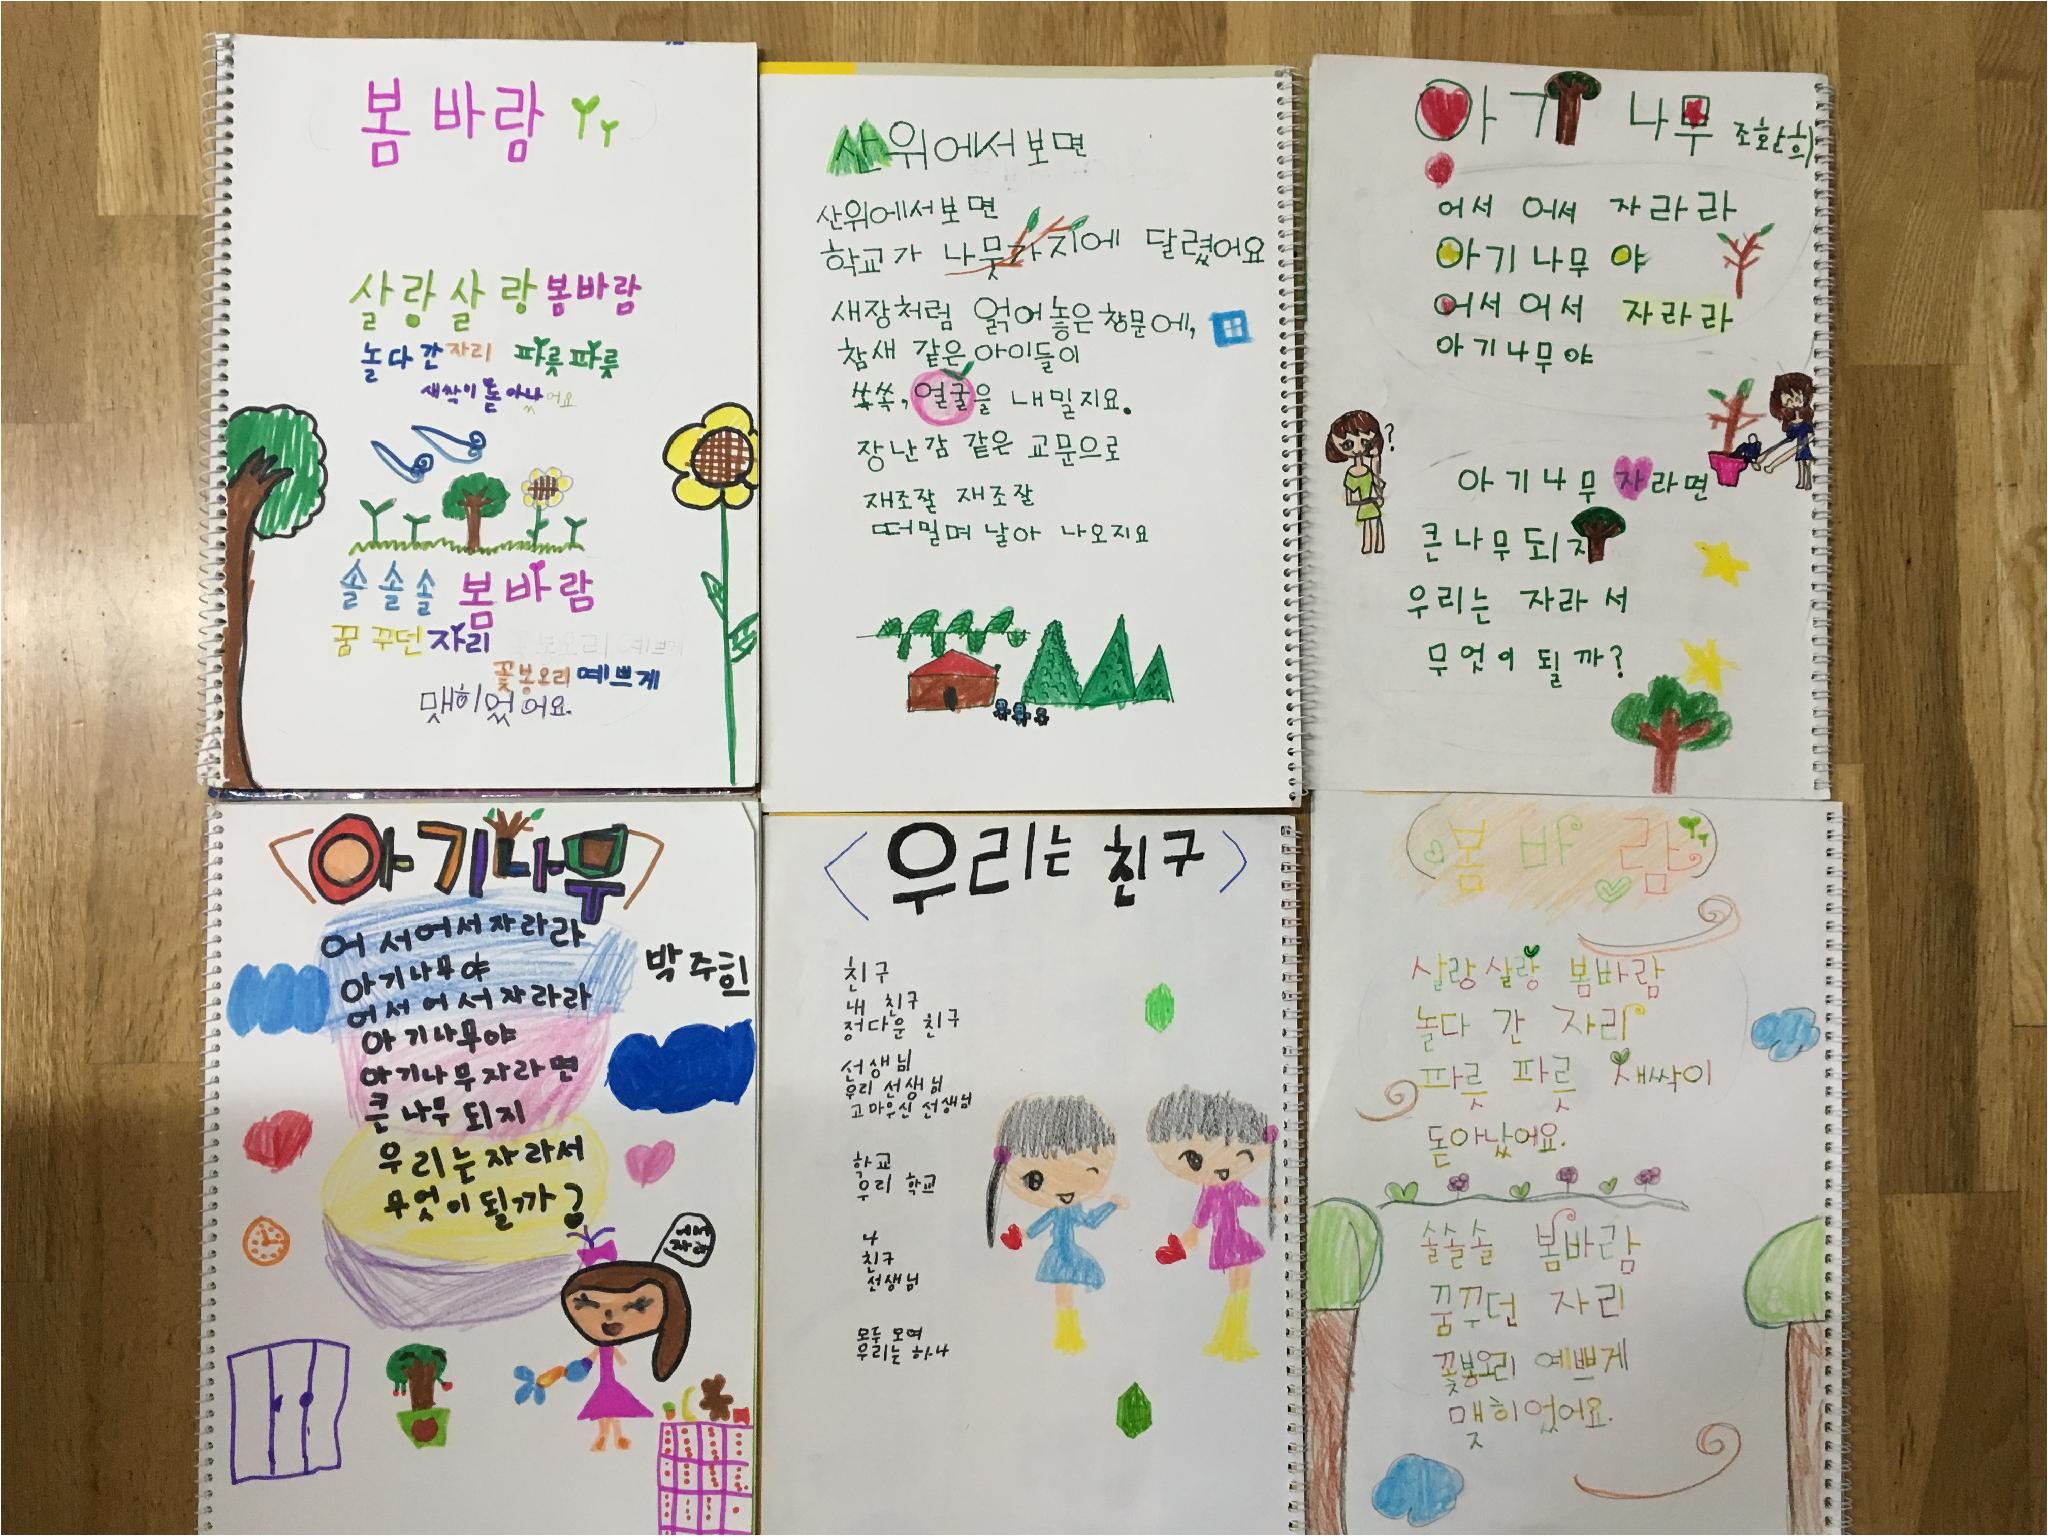 봄바람
살랑살랑봄바람
놀다간자리 파릇파릇
새싹이돋아났어요
솔솔솔 봄바람
꿈꾸던자리
꽃봉오리예쁘게
맺히었어요.
산위에서보면
산위에서보면
학교가 나뭇가지에 달렸어요
새장처럼 얽어놓은창문에,
참새 같은 아이들이
쏙쏙, 얼굴을 내밀지요.
장난감 같은 교문으로
재조잘 재조잘
떠밀며날아 나오지요
아기 나무 조환희
어서 어서 자라라
아기나무야
어서 어서 자라라
아기나무야
아기나무 자라면
큰나무되지
우리는 자라서
무엇이 될까?
?
<아기나무>
박주희
어서어서자라라
아기나무야
어서어서자라라
아기나무야
아기나무자라면
큰나무되지
우리는자라서
무엇이될까?
어서
자라
<우리는 친구>
친구
내 친구
정다운 친구
선생님
우리 선생님
고마우신 선생님
학교
우리 학교
나
친구
선생님
모두 모여
우리는 하나
(봄바람)
살랑살랑 봄바람
놀다 간 자리
파릇 파릇 새싹이
돋아났어요.
솔솔솔 봄바람
꿈꾸던 자리
꽃봉오리 예쁘게
맺히었어요.